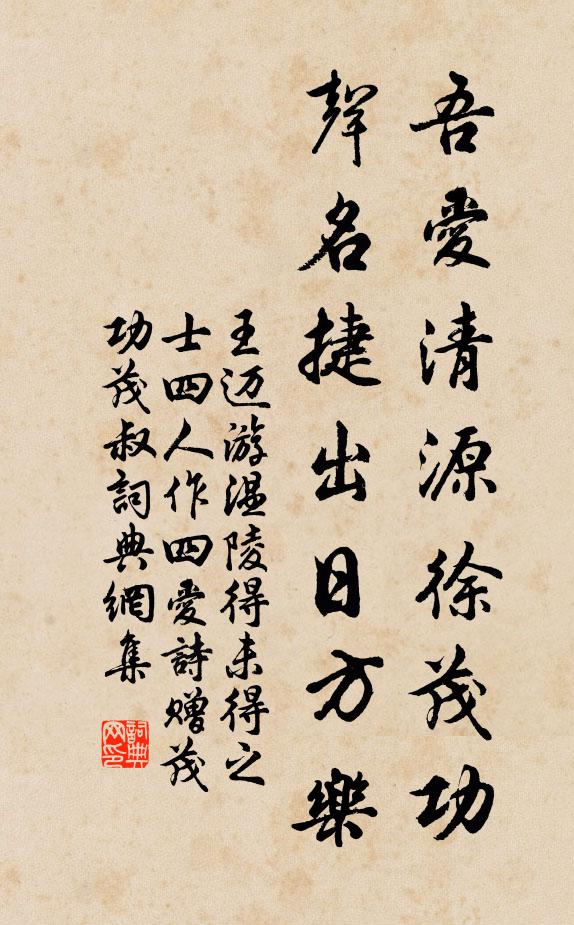 吾愛清源徐茂功
聲名捷出日方樂
王迈游温陵得未得之
士四人作四愛詩贈茂
功茂叔詞典網集
詞典
网印